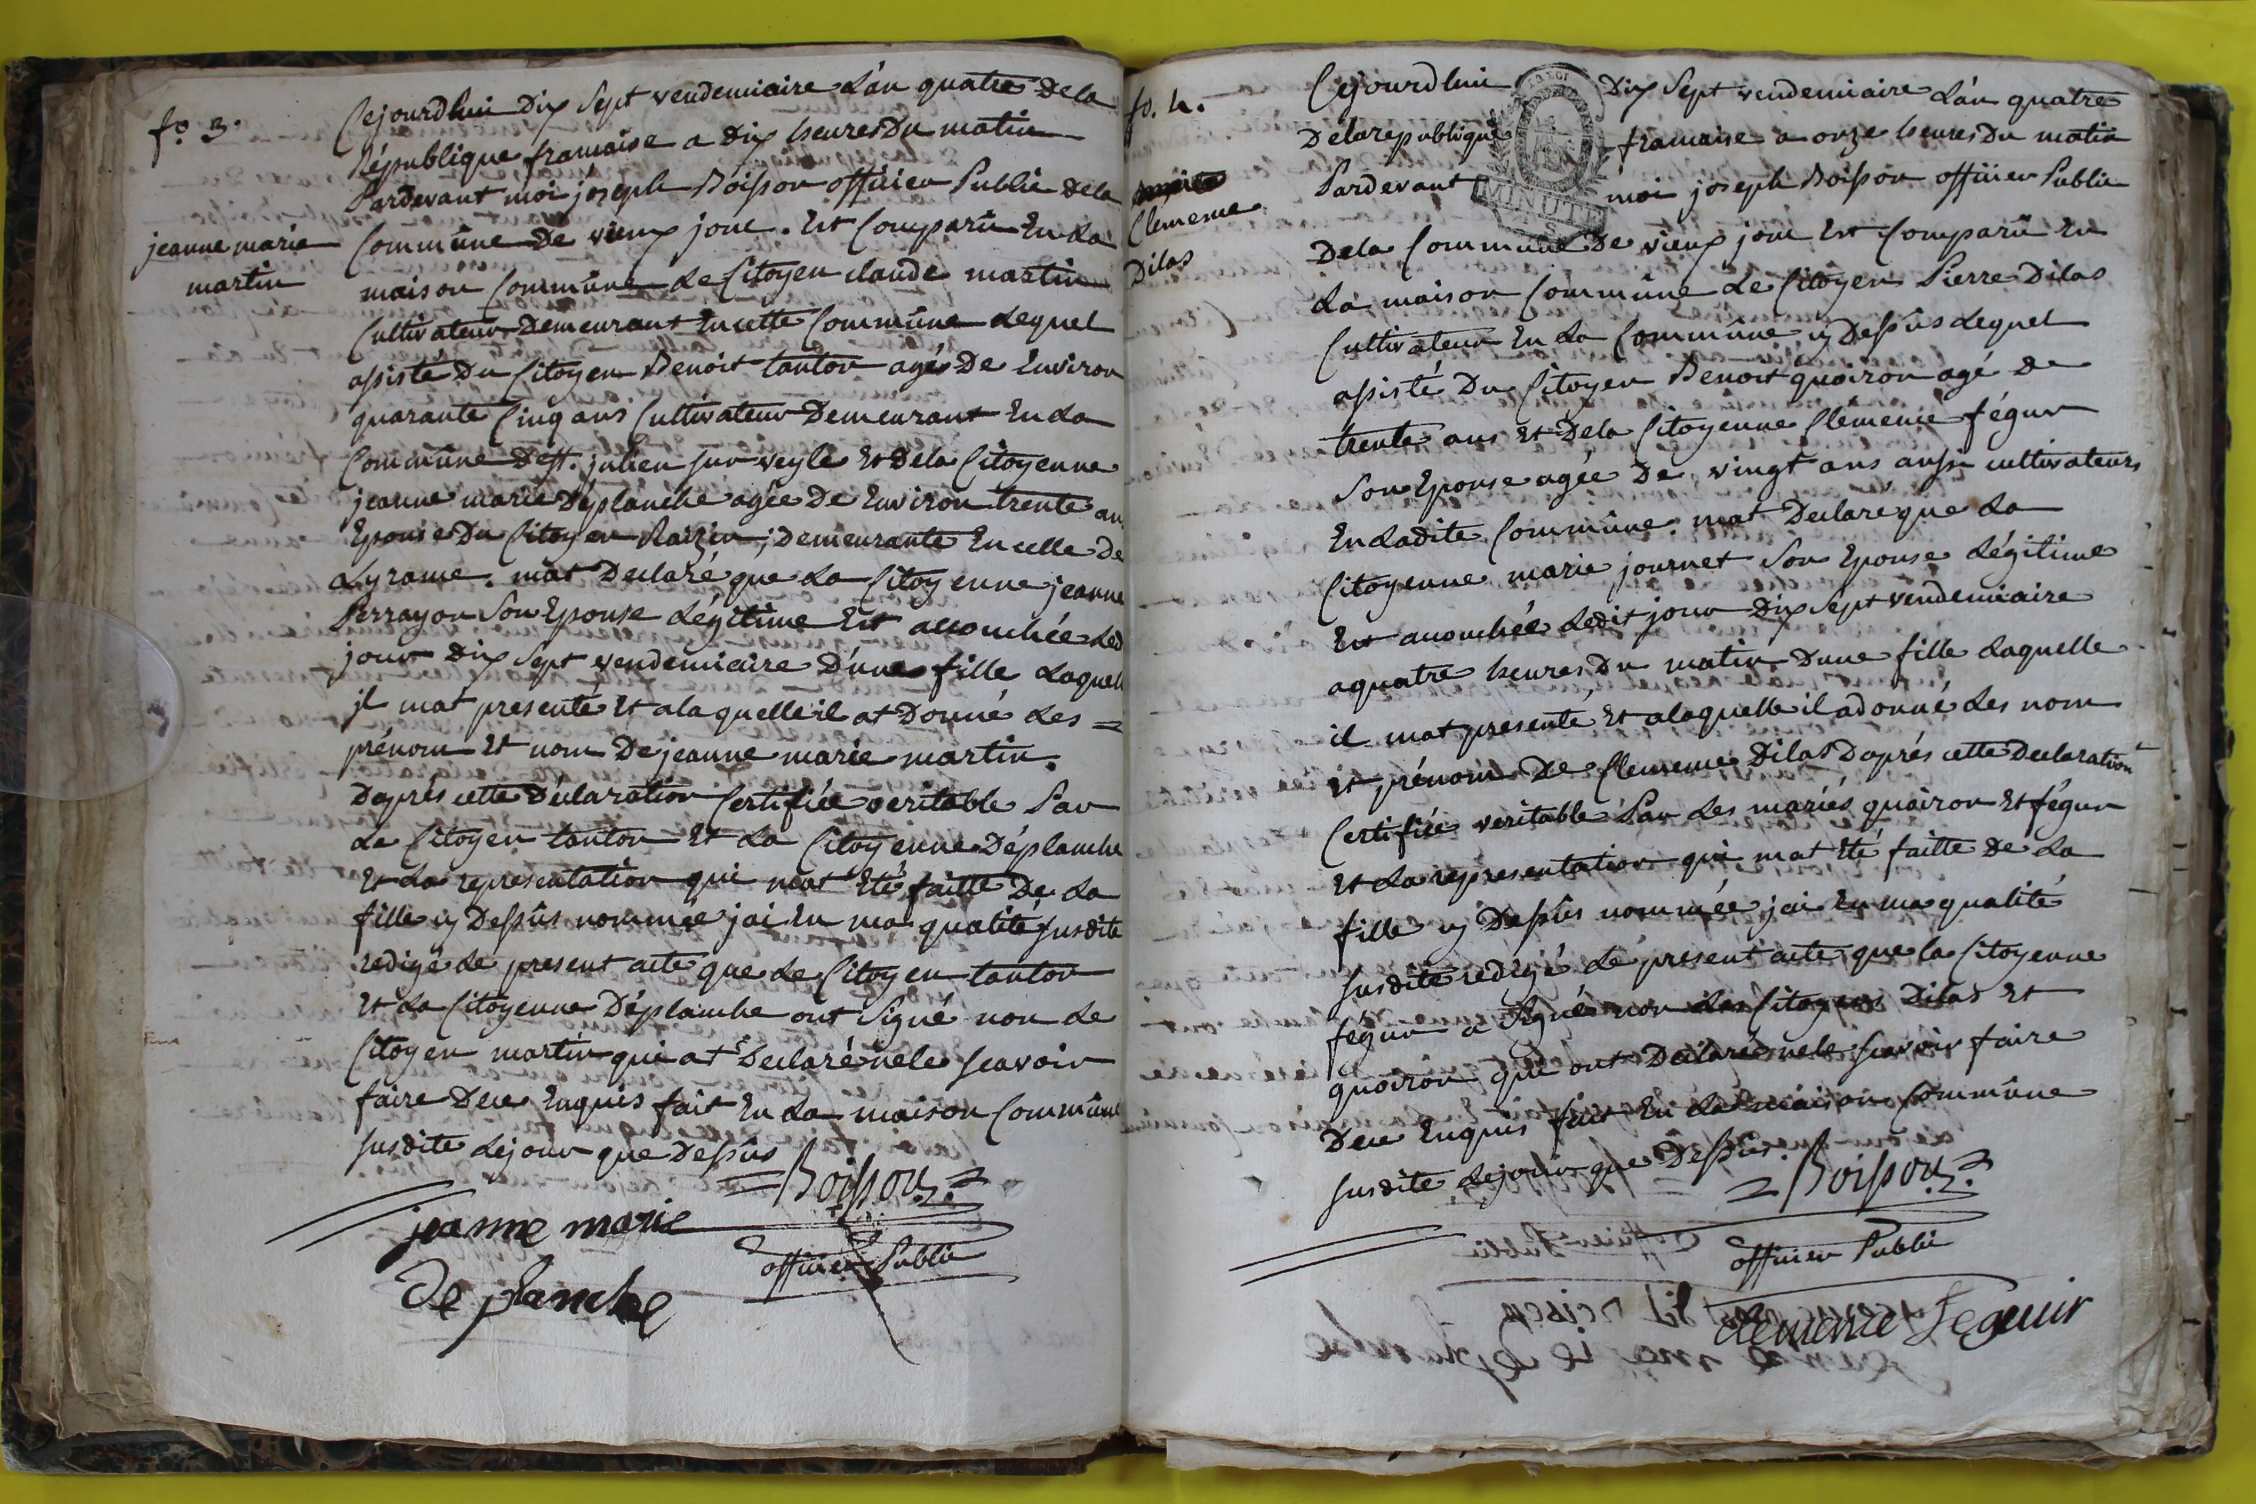 fo. 3.
jeanne marie
martin
Cejourdhui Dix Sept vendemiaire L'an quatre De la
République francaise a Dix heures Du matin
Pardevant moi joseph Boisson officier Public De la
Commûne De vieux jonc. Est Comparû En La
maison Commûne Le Citoyen claude martin
Cultivateur Demeurant En cette Commûne Lequel
assisté Du Citoyen Benoit tanton agés De Environ
quarante Cinq ans Cultivateur Demeurant En La
Commûne De st. julien sur veyle Et De la Citoyenne
jeanne marie Déplanche agée De Environ trente an
Epouse Du Citoyen ; Demeurante En celle De
Lyrame. mat Declaré que La Citoyenne jeanne
Perrayon Son Epouse Légitime Est accouchée Led
jour Dix Sept vendemiaire D'une fille Laquell
jl mat presenté Et a la quelle il at Donné Les =
prénom Et nom De jeanne marie martin.
Daprés cette Déclaration Certifiée veritable Par
Le Citoyen tanton Et La Citoyenne Déplanche
Et La representation qui mat Eté faitte De La
fille cy Dessûs nommée jai En ma qualité susdite
redigé Le present acte que Le Citoyen tanton
Et La Citoyenne Déplanche ont Signé non Le
Citoyen martin qui at Declaré ne le scavoir
faire De ce Enquis fait En La maison Commûne
susdite Le jour que Dessûs
= Boisson
officier Public
jeanne marie
De planche
fo. 4.
Clemence
Dilas
Cejourdhui Dix Sept vendemiaire L'an quatre
De la republique francaise a onze heures Du matin
Pardevant moi joseph Boisson officier Public
MINUTE
De la Commûne De vieux jonc Est Comparû En
La maison Commûne Le Citoyen Pierre Dilas
Cultivateur En La Commûne cy Dessûs Lequel
assisté Du Citoyen Benoit quoiron agé De
trente ans Et De la Citoyenne Clémence fégur
Son Epouse agée De vingt ans aussi cultivateurs
En Ladite Commûne. mat Declaré que La
Citoyenne marie journet Son Epouse Légitime
Est accouchée Ledit jour Dix Sept vendemiaire
a quatre heures Du matin D'une fille Laquelle
il mat presenté Et a laquelle il a donné Les nom
Et prénom De Clemence Dilas Daprés cette Declaration
Certifiée veritable Par Les mariés quoiron Et fégur
Et La representation qui mat Eté faitte De La
fille cy Dessûs nommée jai En ma qualité
susdite redigé Le present acte que la Citoyenne
fégur a Signé non Les Citoyens Dilas Et
quoiron qui ont Declaré ne le scavoir faire
De ce Enquis fait En La maison Commûne
susdite Le jour que Dessûs.
= Boisson
officier Public
clemence Feguir